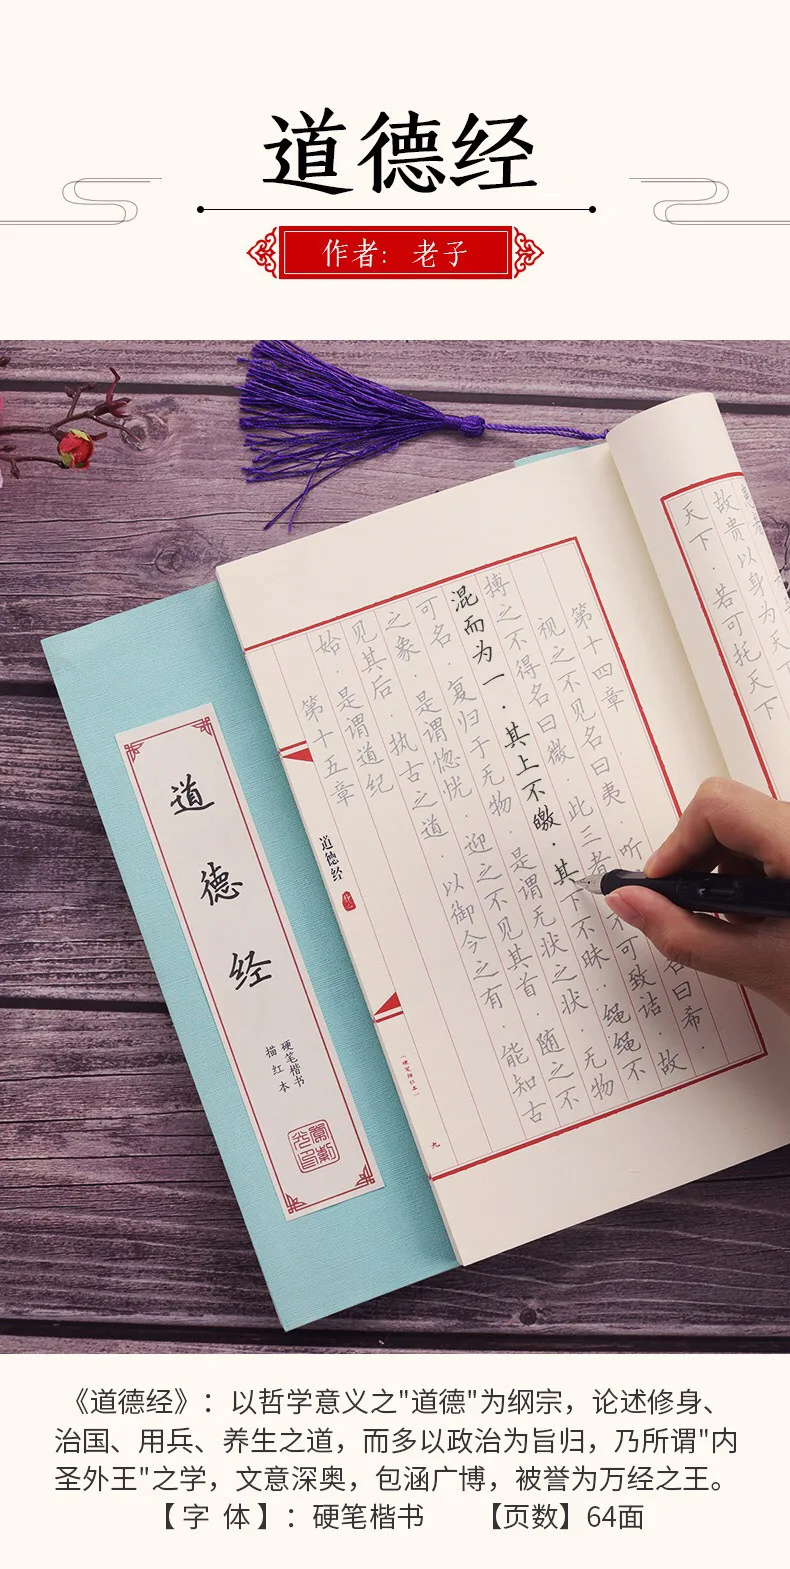 道德经
作者：老子
故贵以身为天下
天下．若可托天下
第十四章
视之不见名曰夷．听
名曰希．
搏之不得名曰微．此三者
不可致诘．故
混而为一．其上不皦．其下不昧．绳绳不
可名．复归于无物．是谓无状之状．无物
之象．是谓惚恍．迎之不见其首．随之不
见其后．执古之道．以御今之有．能知古
始．是谓道纪
第十五章
道德经
九
道德经
硬笔楷书
描红本
《道德经》：以哲学意义之"道德"为纲宗，论述修身、
治国、用兵、养生之道，而多以政治为旨归，乃所谓"内
圣外王"之学，文意深奥，包涵广博，被誉为万经之王。
【字 体】：硬笔楷书 【页数】64面